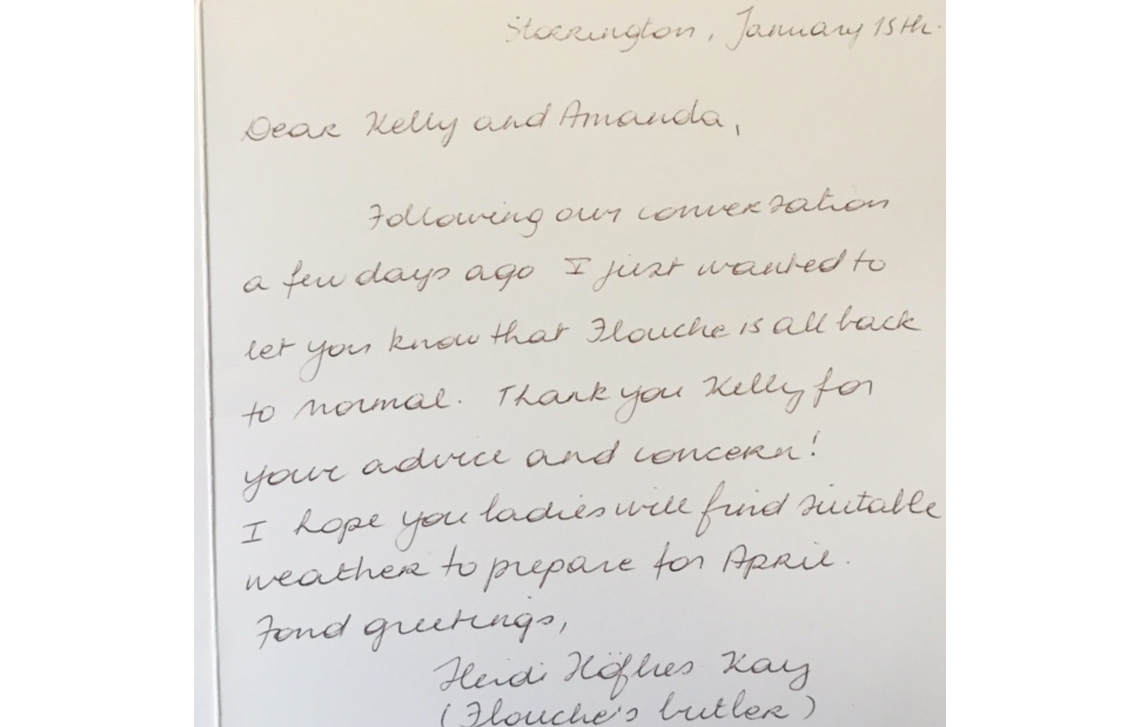 Storrington, January 15th.
Dear Kelly and Amanda,
Following our conversation
a few days ago I just wanted to
let you know that Flouche is all back
to normal. Thank you Kelly for
your advice and concern!
I hope you ladies will find suitable
weather to prepare for April.
Fond greetings,
Heidi Kay
(Flouche's butler)